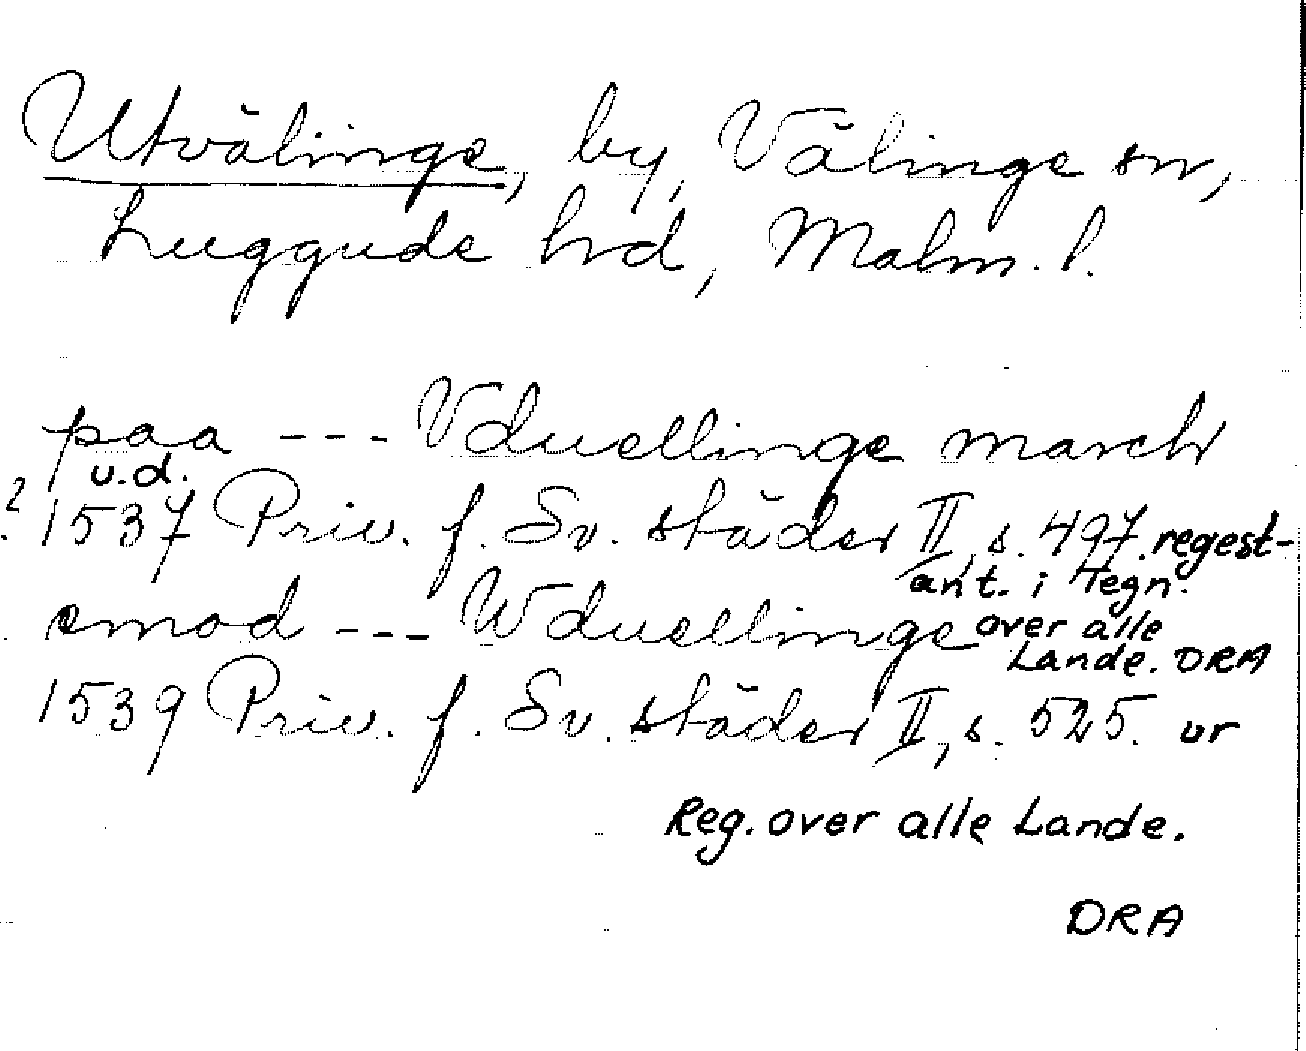 Utvälinge, by, Välinge sn,
Luggude hd, Malm. l.
paa --- Vduellinge march
u.d.
? 1537 Priv. f. Sv. städer II, s. 497. regest-
ant. i Tegn.
over alle
Lande. DRA
emod --- Wduellinge
1539 Priv. f. Sv. städer II, s. 525. ur
Reg. over alle Lande.
DRA